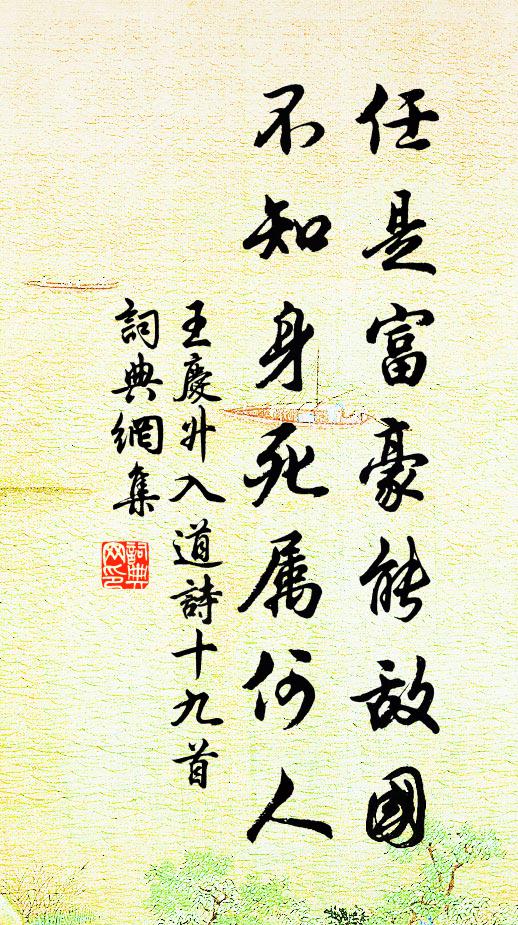 任是富豪能敌國
不知身死属何人
王慶升入道詩十九首
詞典網集
詞典網印